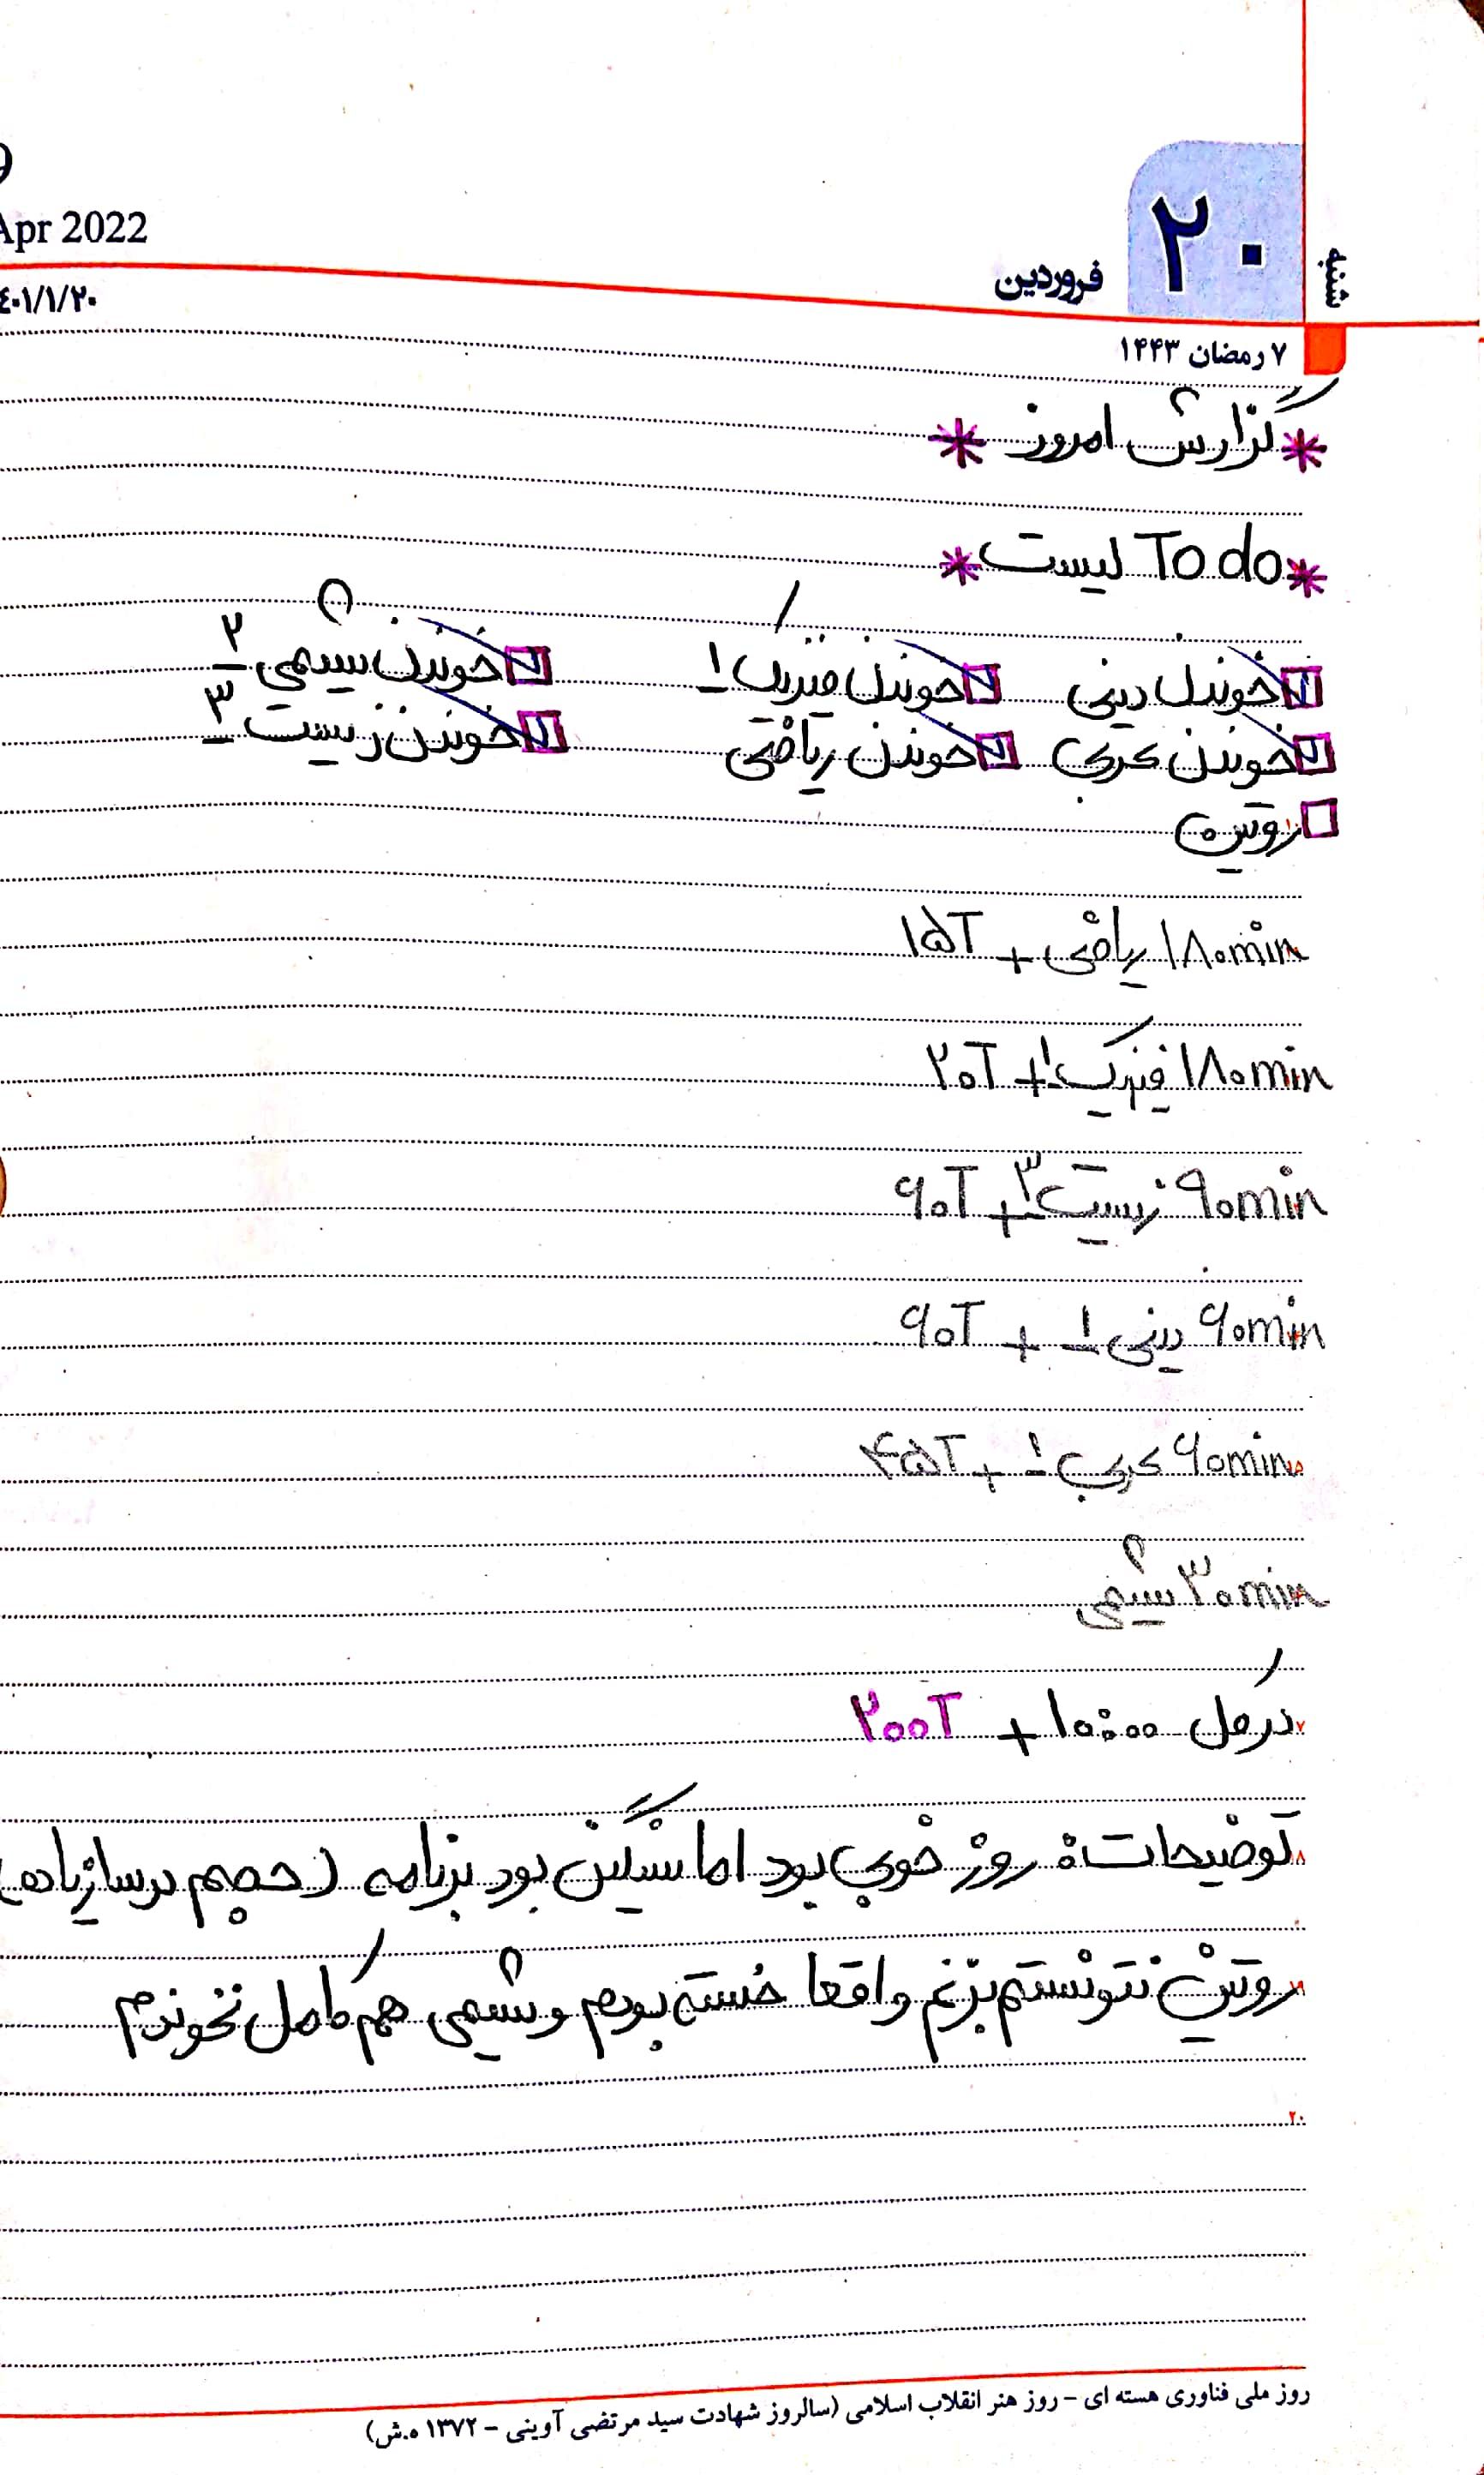 شنبه
۲۰ فروردین
9
Apr 2022
۴۰۱/۱/۲۰
۷ رمضان ۱۴۴۳
* گزارش امروز *
* To do لیست *
خوندن دینی خوندن فیزیک ۱ خوندن شیمی ۲
خوندن عربی خوندن ریاضی خوندن زیست ۳
روتین
۱۸۰min ریاضی + ۱۵T
۱۸۰min فیزیک ۱ + ۲۰T
۹۰min زیست ۳ + ۶۰T
۶۰min دینی ۱ + ۶۰T
۶۰min عربی ۱ + ۴۵T
۳۰min شیمی
درکل ۱۰:۰۰ + ۲۰۰T
توضیحات: روز خوبی بود اما سنگین بود برنامه (حجم درسا زیاده)
روتین نتونستم بزنم واقعا خسته بودم و شیمی هم کامل نخوندم
۲۰
روز ملی فناوری هسته ای - روز هنر انقلاب اسلامی (سالروز شهادت سید مرتضی آوینی - ۱۳۷۲ ه.ش)